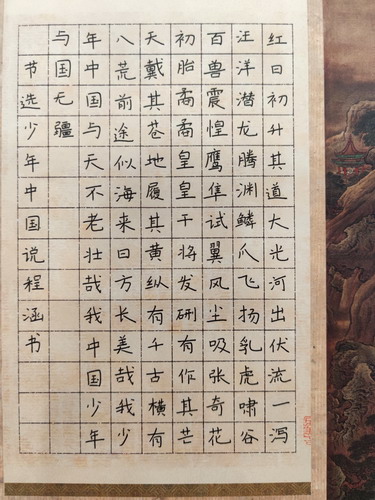 红日初升其道大光河出伏流一泻
汪洋潜龙腾渊鳞爪飞扬乳虎啸谷
百兽震惶鹰隼试翼风尘吸张奇花
初胎矞矞皇皇干将发硎有作其芒
天戴其苍地履其黄纵有千古横有
八荒前途似海来日方长美哉我少
年中国与天不老壮哉我中国少年
与国无疆
节选少年中国说程涵书